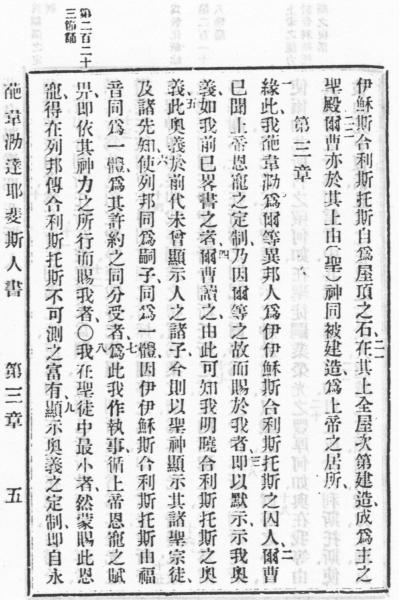 伊穌斯合利斯托斯自爲屋頂之石、二一在其上全屋次第建造成爲主之
聖殿、二二爾曹亦於其上由(聖)神同被建造、爲上帝之居所、
第三章
一緣此我葩韋泐爲爾等異邦人爲伊伊穌斯合利斯托斯之囚人、二爾曹
已聞上帝恩寵之定制乃因爾等之故而賜於我者、三卽以默示示我奧
義、如我前已畧書之者、四爾曹讀之、由此可知我明曉合利斯托斯之奧
義、五此奧義於前代未曾顯示人之諸子、今則以聖神顯示其諸聖宗徒
及諸先知、六使列邦同爲嗣子、同爲一體、因伊伊穌斯合利斯托斯由福
音同爲一體、爲其許約之同分受者、七爲此我作執事、循上帝恩寵之賦
畀、卽依其神力之所行而賜我者、〇八我在聖徒中最小者、然蒙賜此恩
寵得在列邦傳合利斯托斯不可測之富有、九顯示奧義之定制、卽自永
第二百二十
三端誦
葩韋泐達耶斐斯人書 第三章 五